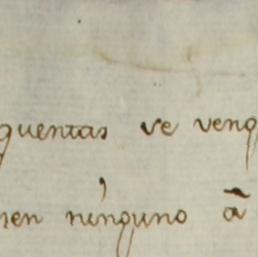 quentas ve veng
sen ninguno ā